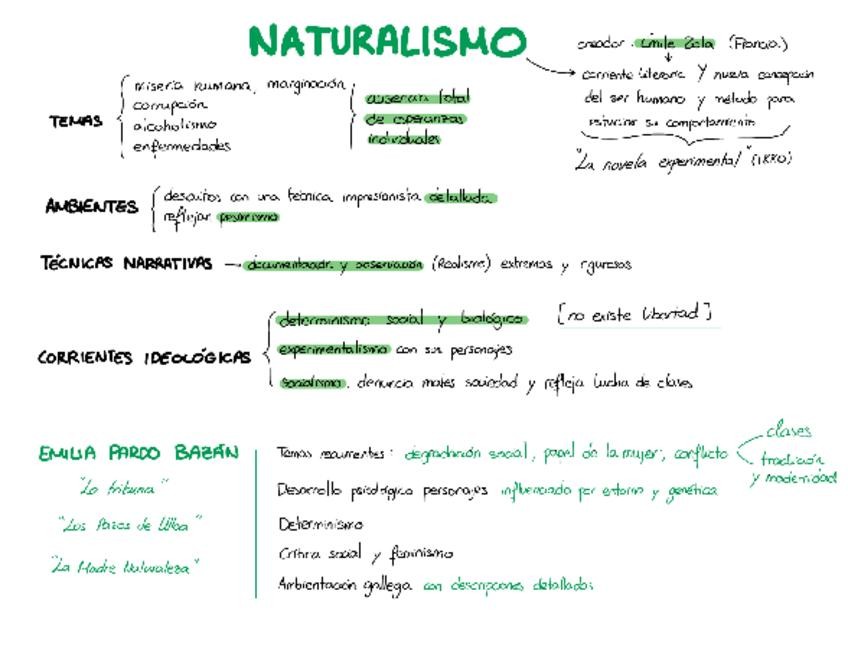 NATURALISMO
creador: Émile Zola (Francia)
corriente literaria y nueva concepción
del ser humano y método para
estudiar su comportamiento
"La novela experimental" (1880)
TEMAS
miseria humana, marginación
corrupción
alcoholismo
enfermedades
ausencia total
de esperanzas
individuales
AMBIENTES
descritos con una técnica impresionista detallada
reflejar pesimismo
TÉCNICAS NARRATIVAS → documentación y observación (Realismo) extremas y rigurosas
CORRIENTES IDEOLÓGICAS
determinismo social y biológico [no existe libertad]
experimentalismo con sus personajes
socialismo, denuncia males sociedad y refleja lucha de clases
EMILIA PARDO BAZÁN
"La tribuna"
"Los Pazos de Ulloa"
"La Madre Naturaleza"
Temas recurrentes: degradación social, papel de la mujer, conflicto
clases
tradición
y modernidad
Desarrollo psicológico personajes influenciado por entorno y genética
Determinismo
Crítica social y feminismo
Ambientación gallega con descripciones detalladas